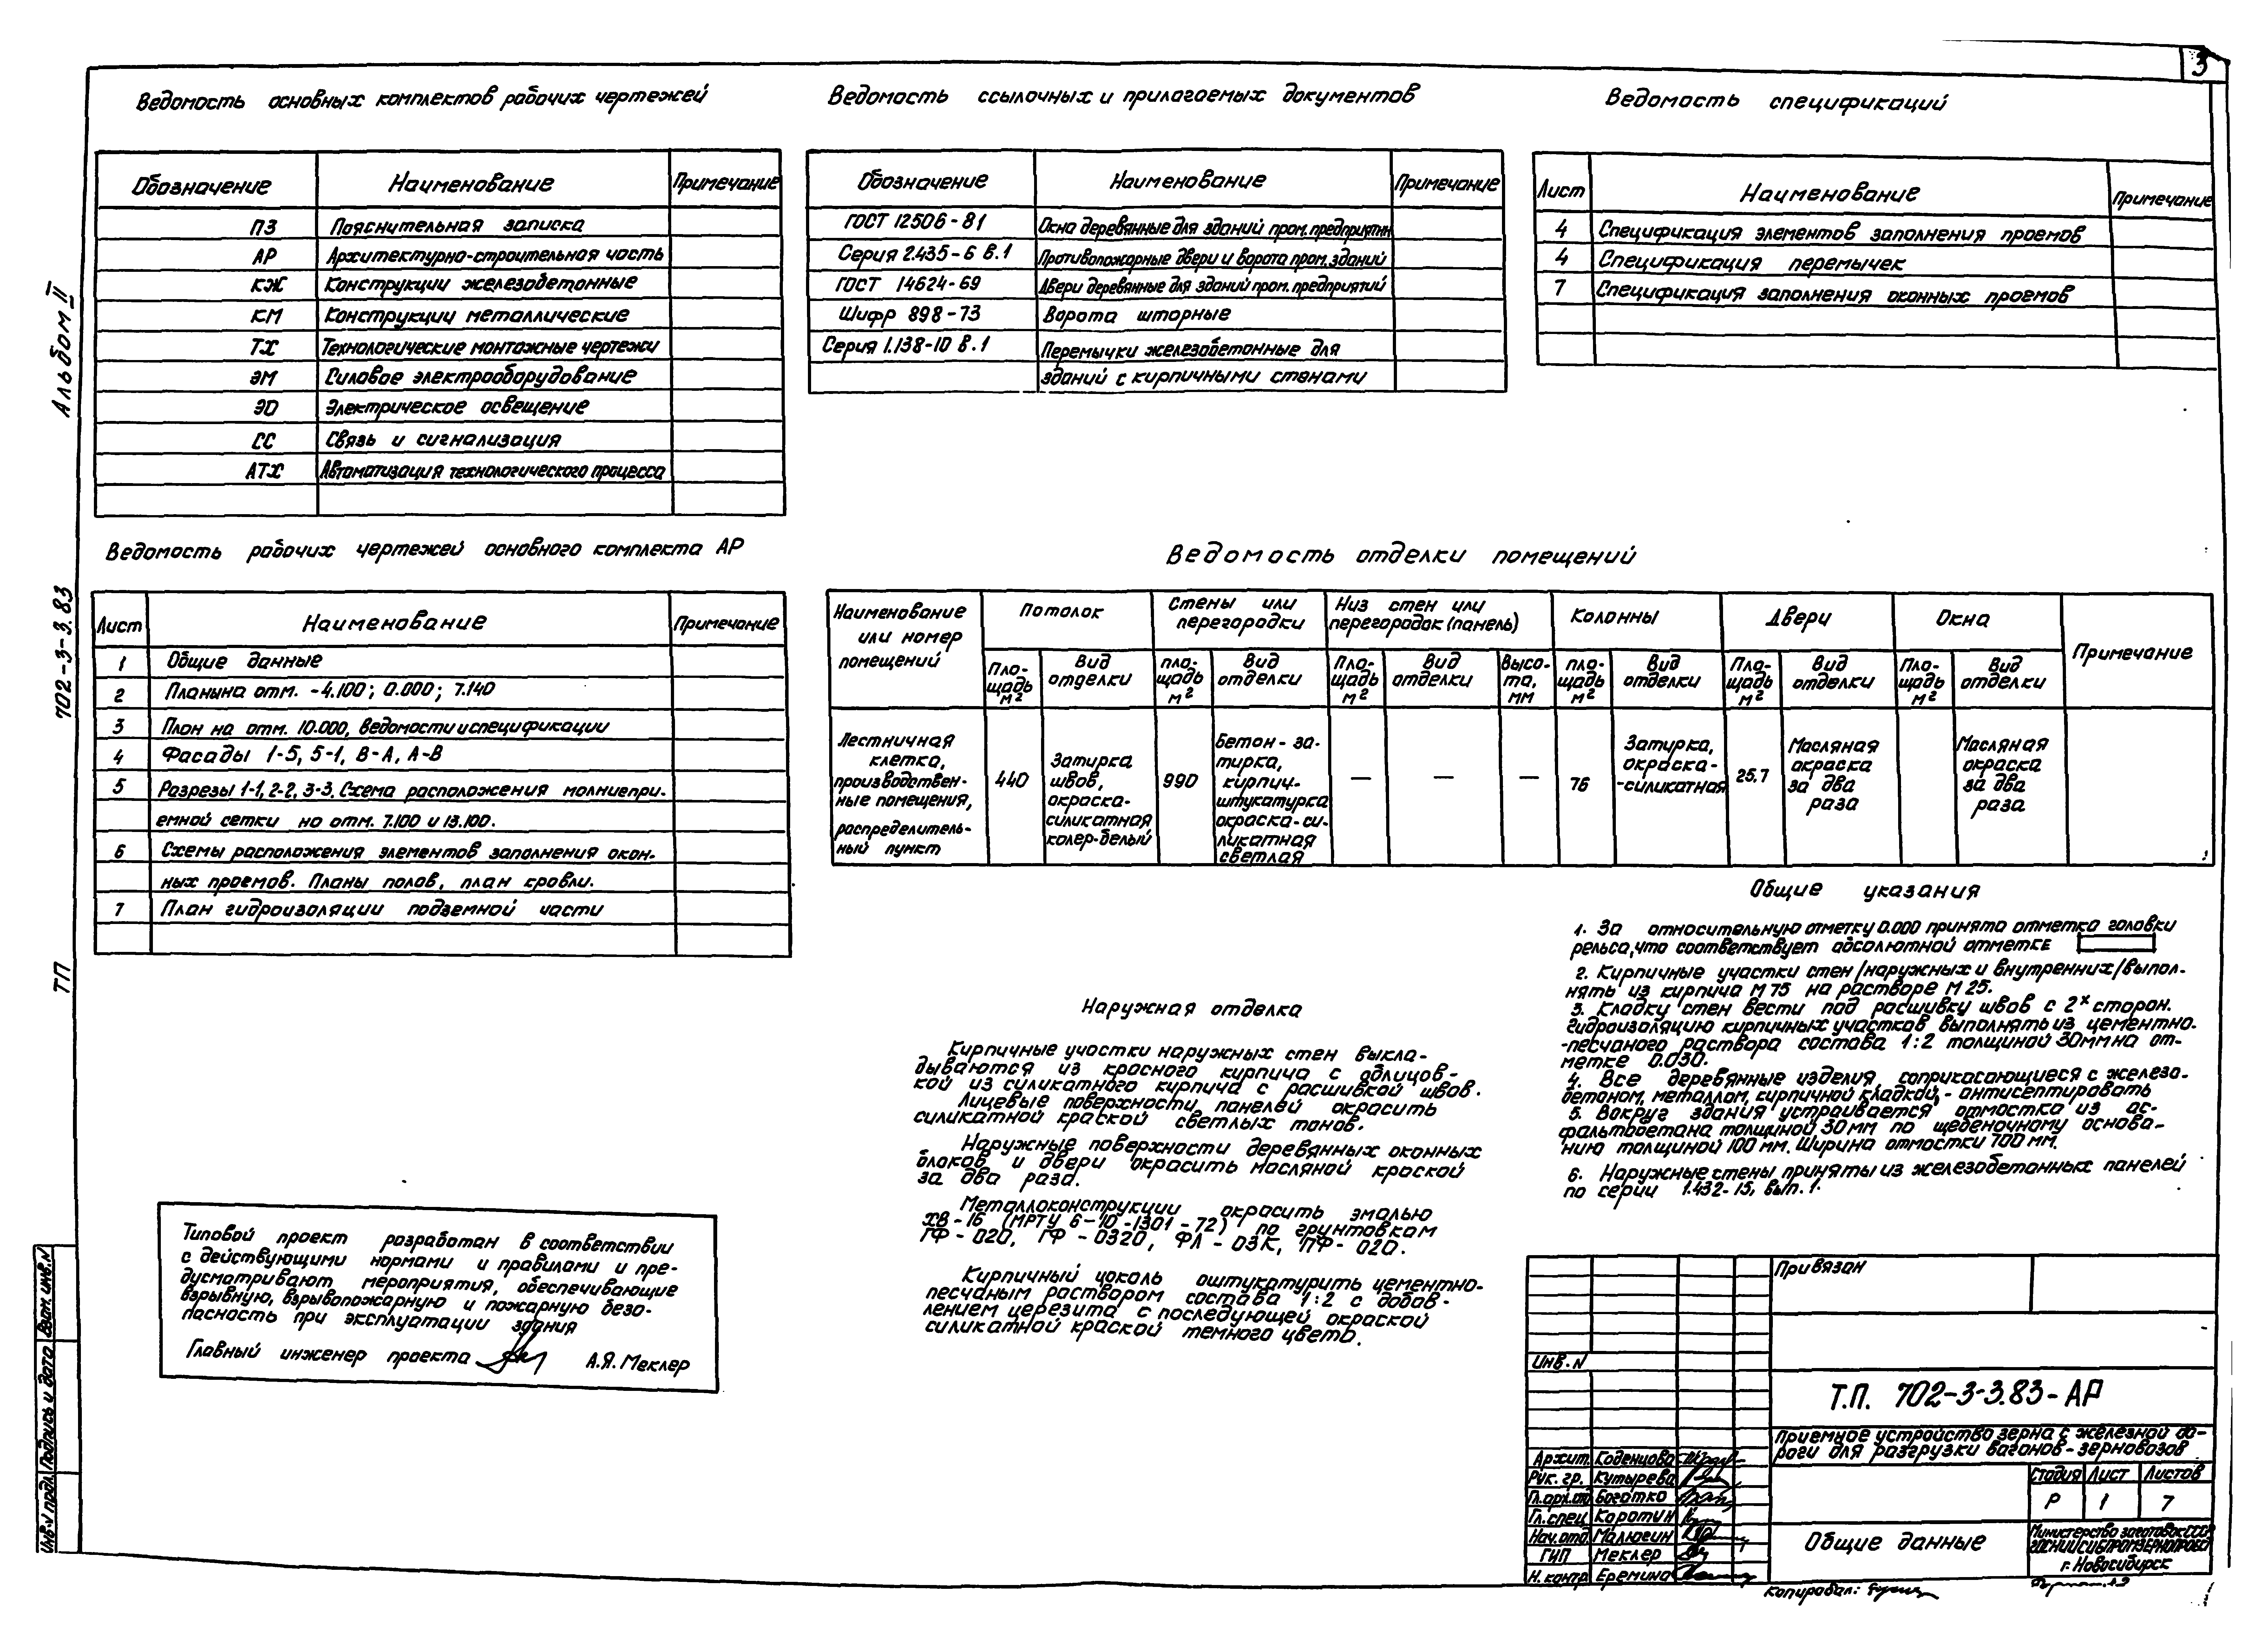 3
Альбом II
702-3-3.83
ТП
Ведомость основных комплектов рабочих чертежей
Обозначение Наименование Примечание
ПЗ Пояснительная записка
АР Архитектурно-строительная часть
КЖ Конструкции железобетонные
КМ Конструкции металлические
ТХ Технологические монтажные чертежи
ЭМ Силовое электрооборудование
ЭО Электрическое освещение
СС Связь и сигнализация
АТХ Автоматизация технологического процесса
Ведомость ссылочных и прилагаемых документов
Обозначение Наименование Примечание
ГОСТ 12506-81 Окна деревянные для зданий пром. предприятий
Серия 2.435-6 в.1 Противопожарные двери и ворота пром. зданий
ГОСТ 14624-69 Двери деревянные для зданий пром. предприятий
Шифр 898-73 Ворота шторные
Серия 1.138-10 в.1 Перемычки железобетонные для
зданий с кирпичными стенами
Ведомость спецификаций
Лист Наименование Примечание
4 Спецификация элементов заполнения проемов
4 Спецификация перемычек
7 Спецификация заполнения оконных проемов
Ведомость рабочих чертежей основного комплекта АР
Лист Наименование Примечание
1 Общие данные
2 Планы на отм. -4.100; 0.000; 7.140
3 План на отм. 10.000, ведомости и спецификации
4 Фасады 1-5, 5-1, В-А, А-В
5 Разрезы 1-1, 2-2, 3-3. Схема расположения молниепри-
емной сетки на отм. 7.100 и 13.100.
6 Схемы расположения элементов заполнения окон-
ных проемов. Планы полов, план кровли.
7 План гидроизоляции подземной части
Ведомость отделки помещений
Наименование или номер помещений
Потолок
Стены или перегородки
Низ стен или перегородок (панель)
Колонны
Двери
Окна
Примечание
Площадь м² Вид отделки Площадь м² Вид отделки Площадь м² Вид отделки Высота, мм Площадь м² Вид отделки Площадь м² Вид отделки Площадь м² Вид отделки
Лестничная
клетка,
производствен-
ные помещения,
распределитель-
ный пункт
440
Затирка
швов,
окраска-
силикатная
колер-белый
990
Бетон-за-
тирка,
кирпич-
штукатурка
окраска-си-
ликатная
светлая
— — —
76
Затирка,
окраска-
-силикатная
25.7
Масляная
окраска
за два
раза
Масляная
окраска
за два
раза
Наружная отделка
Кирпичные участки наружных стен выкла-
дываются из красного кирпича с облицов-
кой из силикатного кирпича с расшивкой швов.
Лицевые поверхности панелей окрасить
силикатной краской светлых тонов.
Наружные поверхности деревянных оконных
блоков и двери окрасить масляной краской
за два раза.
Металлоконструкции окрасить эмалью
ХВ-16 (МРТУ 6-10-1301-72) по грунтовкам
ГФ-020, ГФ-0320, ФЛ-03К, ПФ-020.
Кирпичный цоколь оштукатурить цементно-
песчаным раствором состава 1:2 с добав-
лением церезита с последующей окраской
силикатной краской темного цвета.
Общие указания
1. За относительную отметку 0.000 принята отметка головки
рельса, что соответствует абсолютной отметке
2. Кирпичные участки стен /наружных и внутренних/ выпол-
нять из кирпича М75 на растворе М25.
3. Кладку стен вести под расшивку швов с 2х сторон.
Гидроизоляцию кирпичных участков выполнять из цементно-
-песчаного раствора состава 1:2 толщиной 30мм на от-
метке 0.030.
4. Все деревянные изделия, соприкасающиеся с железо-
бетоном, металлом, кирпичной кладкой, - антисептировать
5. Вокруг здания устраивается отмостка из ас-
фальтобетона толщиной 30мм по щебеночному основа-
нию толщиной 100 мм. Ширина отмостки 700 мм.
6. Наружные стены приняты из железобетонных панелей
по серии 1.432-15, вып. 1.
Типовой проект разработан в соответствии
с действующими нормами и правилами и пре-
дусматривают мероприятия, обеспечивающие
взрывную, взрывопожарную и пожарную безо-
пасность при эксплуатации здания
Главный инженер проекта А.Я. Меклер
Взам. инв. N
Подпись и дата
Инв. N подл.
Привязан
Инв. N
Т.П. 702-3-3.83-АР
Приемное устройство зерна с железной до-
роги для разгрузки вагонов-зерновозов
Архит. Коденцова
Рук. гр. Кутырева
Гл.арх.от. Богатко
Гл. спец. Коротин
Нач. отд. Малюгин
ГИП Меклер
Н. контр. Еремина
Стадия Лист Листов
Р 1 7
Общие данные
Министерство заготовок СССР
ГОСНИИСИБПРОМЗЕРНОПРОЕКТ
г. Новосибирск
Копировал: